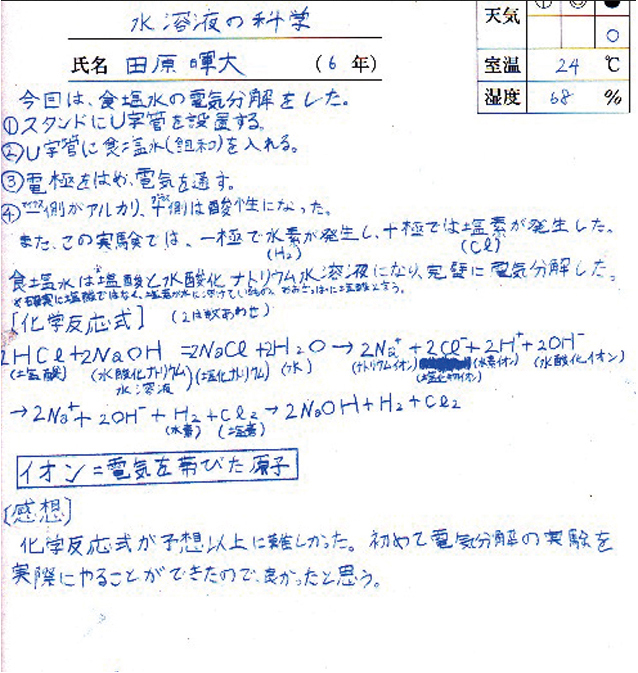 水溶液の科学
天気 ① ◎ ●
○
氏名 田原暉大 (6年)
室温 24 ℃
湿度 68 %
今回は、食塩水の電気分解をした。
①スタンドにU字管を設置する。
②U字管に食塩水(飽和)を入れる。
③電極をはめ、電気を通す。
④マイナス一側がアルカリ、プラス十側は酸性になった。
また、この実験では、一極で水素が発生し、十極では塩素が発生した。
(H₂) (Cl)
食塩水は塩酸と水酸化ナトリウム水溶液になり、完璧に電気分解した。
※確実に塩酸ではなく、塩素が水に溶けているもの。おおざっぱに塩酸と言う。
[化学反応式] (2は数あわせ)
2HCl+2NaOH=2NaCl+2H₂O→2Na⁺+2Cl⁻+2H⁺+2OH⁻
(塩酸) (水酸化ナトリウム水溶液) (塩化ナトリウム) (水) (ナトリウムイオン) (塩化物イオン) (水素イオン) (水酸化イオン)
→2Na⁺+2OH⁻+H₂+Cl₂→2NaOH+H₂+Cl₂
(水素) (塩素)
イオン=電気を帯びた原子
[感想]
化学反応式が予想以上に難しかった。初めて電気分解の実験を
実際にやることができたので、良かったと思う。